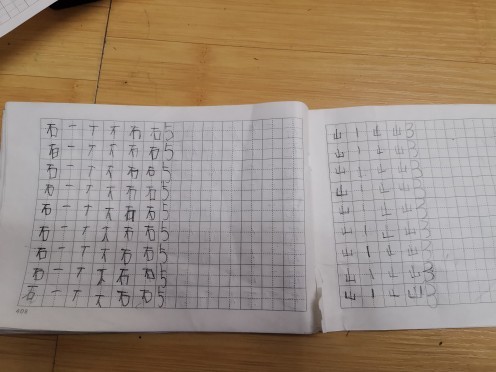 石 一 丆 石 石 5
石 一 丆 石 石 5
石 一 丆 石 石 5
石 一 丆 石 石 5
石 一 丆 石 石 5
石 一 丆 石 石 5
石 一 丆 石 石 5
石 一 丆 石 石 5
石 一 丆 石 石 5
山 丨 山 3
山 丨 山 3
山 丨 山 3
山 丨 山 3
山 丨 山 3
山 丨 山 3
山 丨 山 3
山 丨 山 3
山 丨 山 3